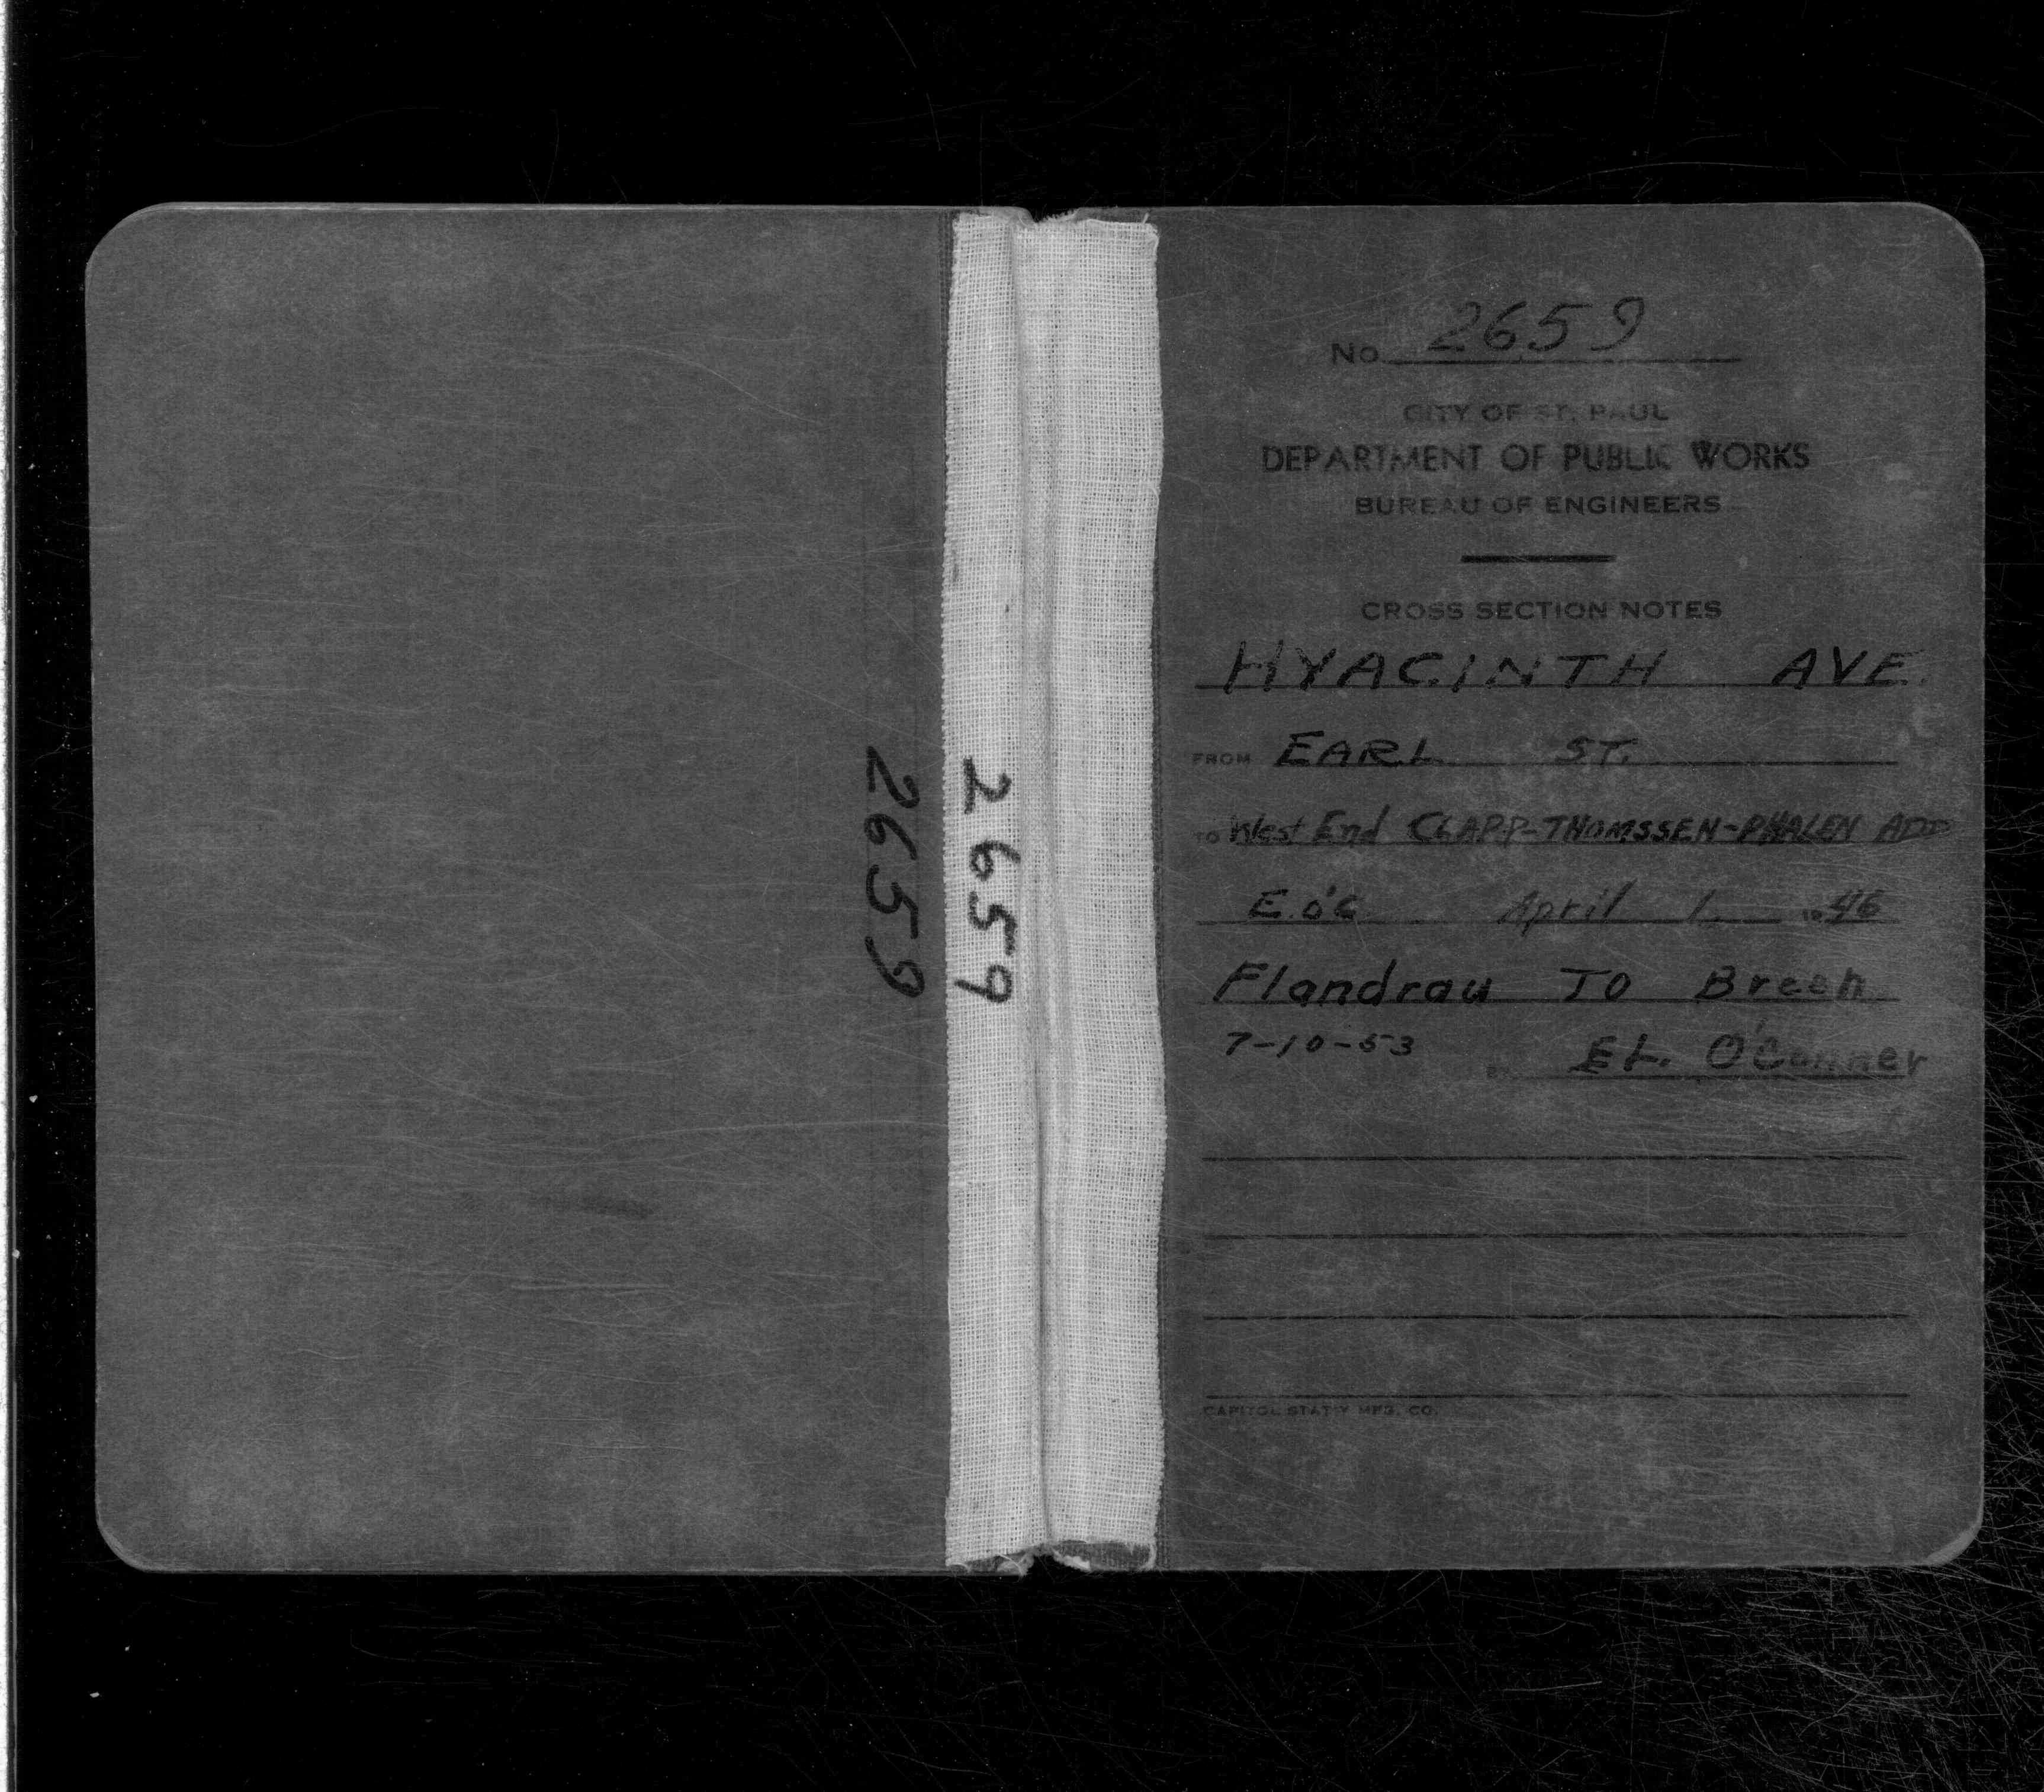 2659
2659
No. 2659
CITY OF ST. PAUL
DEPARTMENT OF PUBLIC WORKS
BUREAU OF ENGINEERS
CROSS SECTION NOTES
HYACINTH AVE.
FROM EARL ST.
TO West End CLAPP-THOMSSEN-PHALEN ADD
E.O'C April 1 1946
Flandrau TO Breen
7-10-53 BY E.L. O'Conner
CAPITOL STAT'Y MFG. CO.